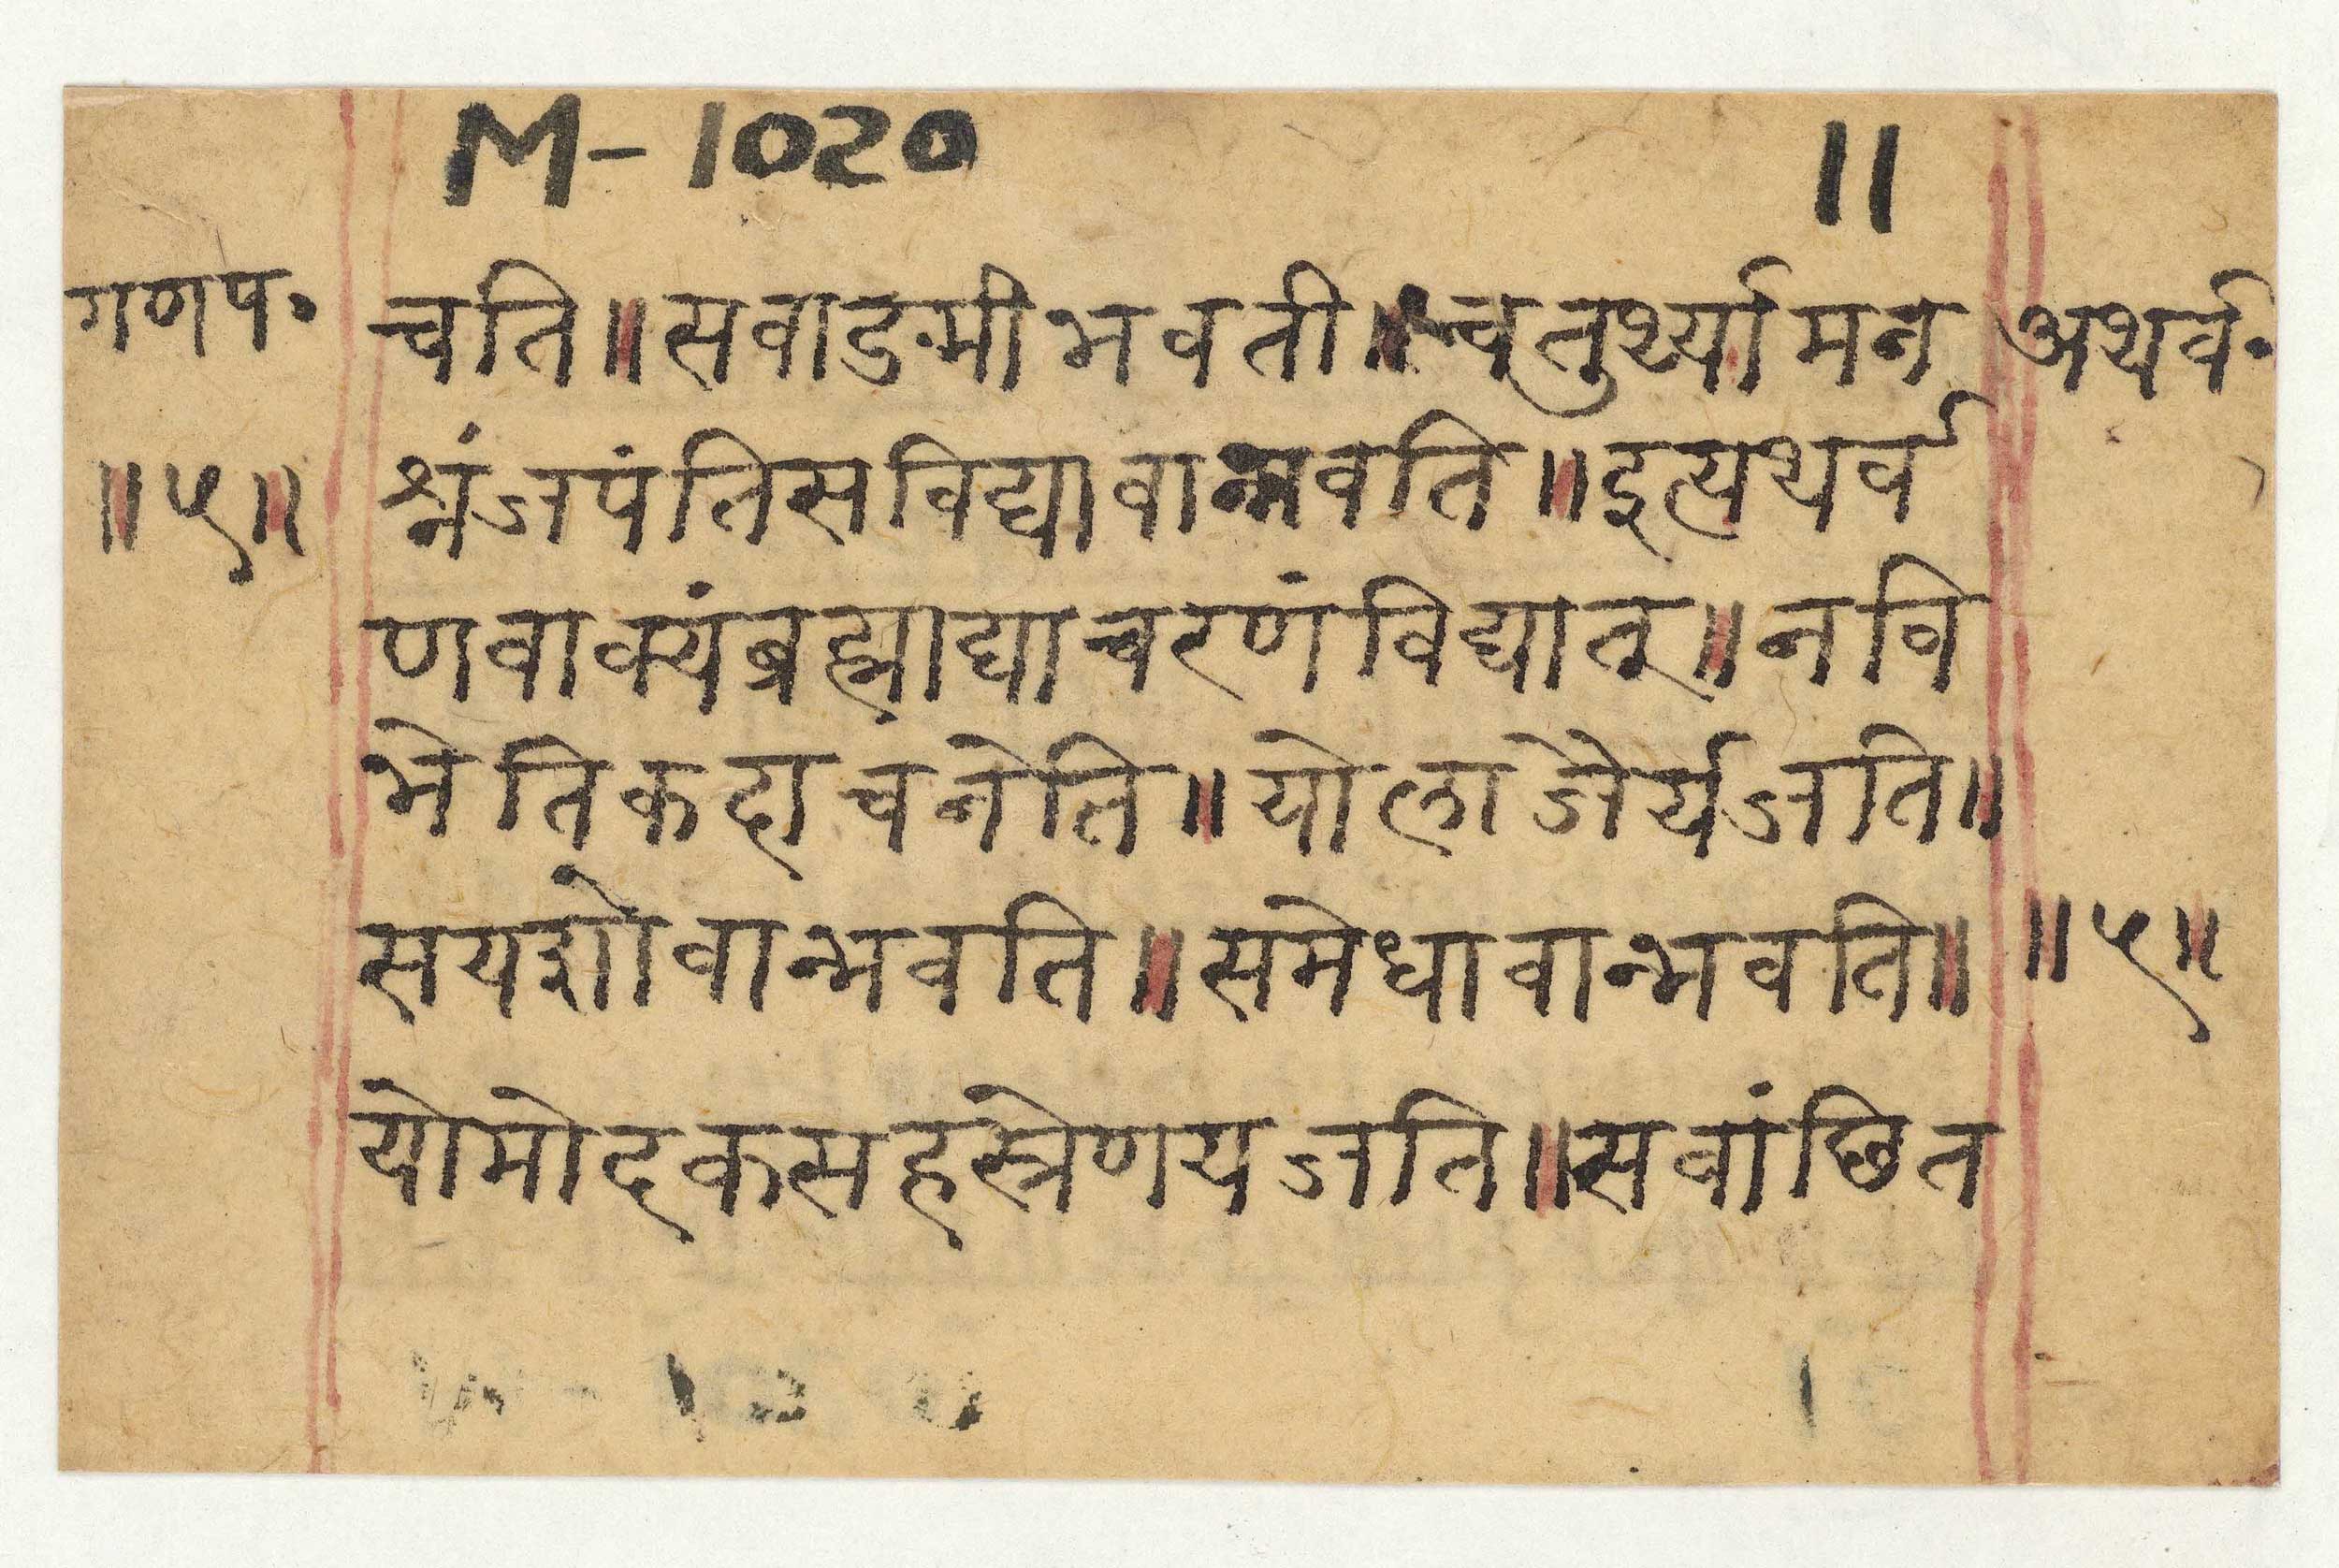 M-1020 11
गणप॰ चति॥सवाङमीभवती॥चतुर्थ्यामन अथर्व॰
॥५॥ श्नंजपंतिसविद्यावान्भवति॥इत्यथर्व
णवाक्यंब्रह्माद्याचरणंविद्यात्॥नबि
भेतिकदाचनेति॥योलाजैर्यजति॥
सयशोवान्भवति॥समेधावान्भवति॥ ॥५॥
योमोदकसहस्त्रेणयजति॥सवांछित